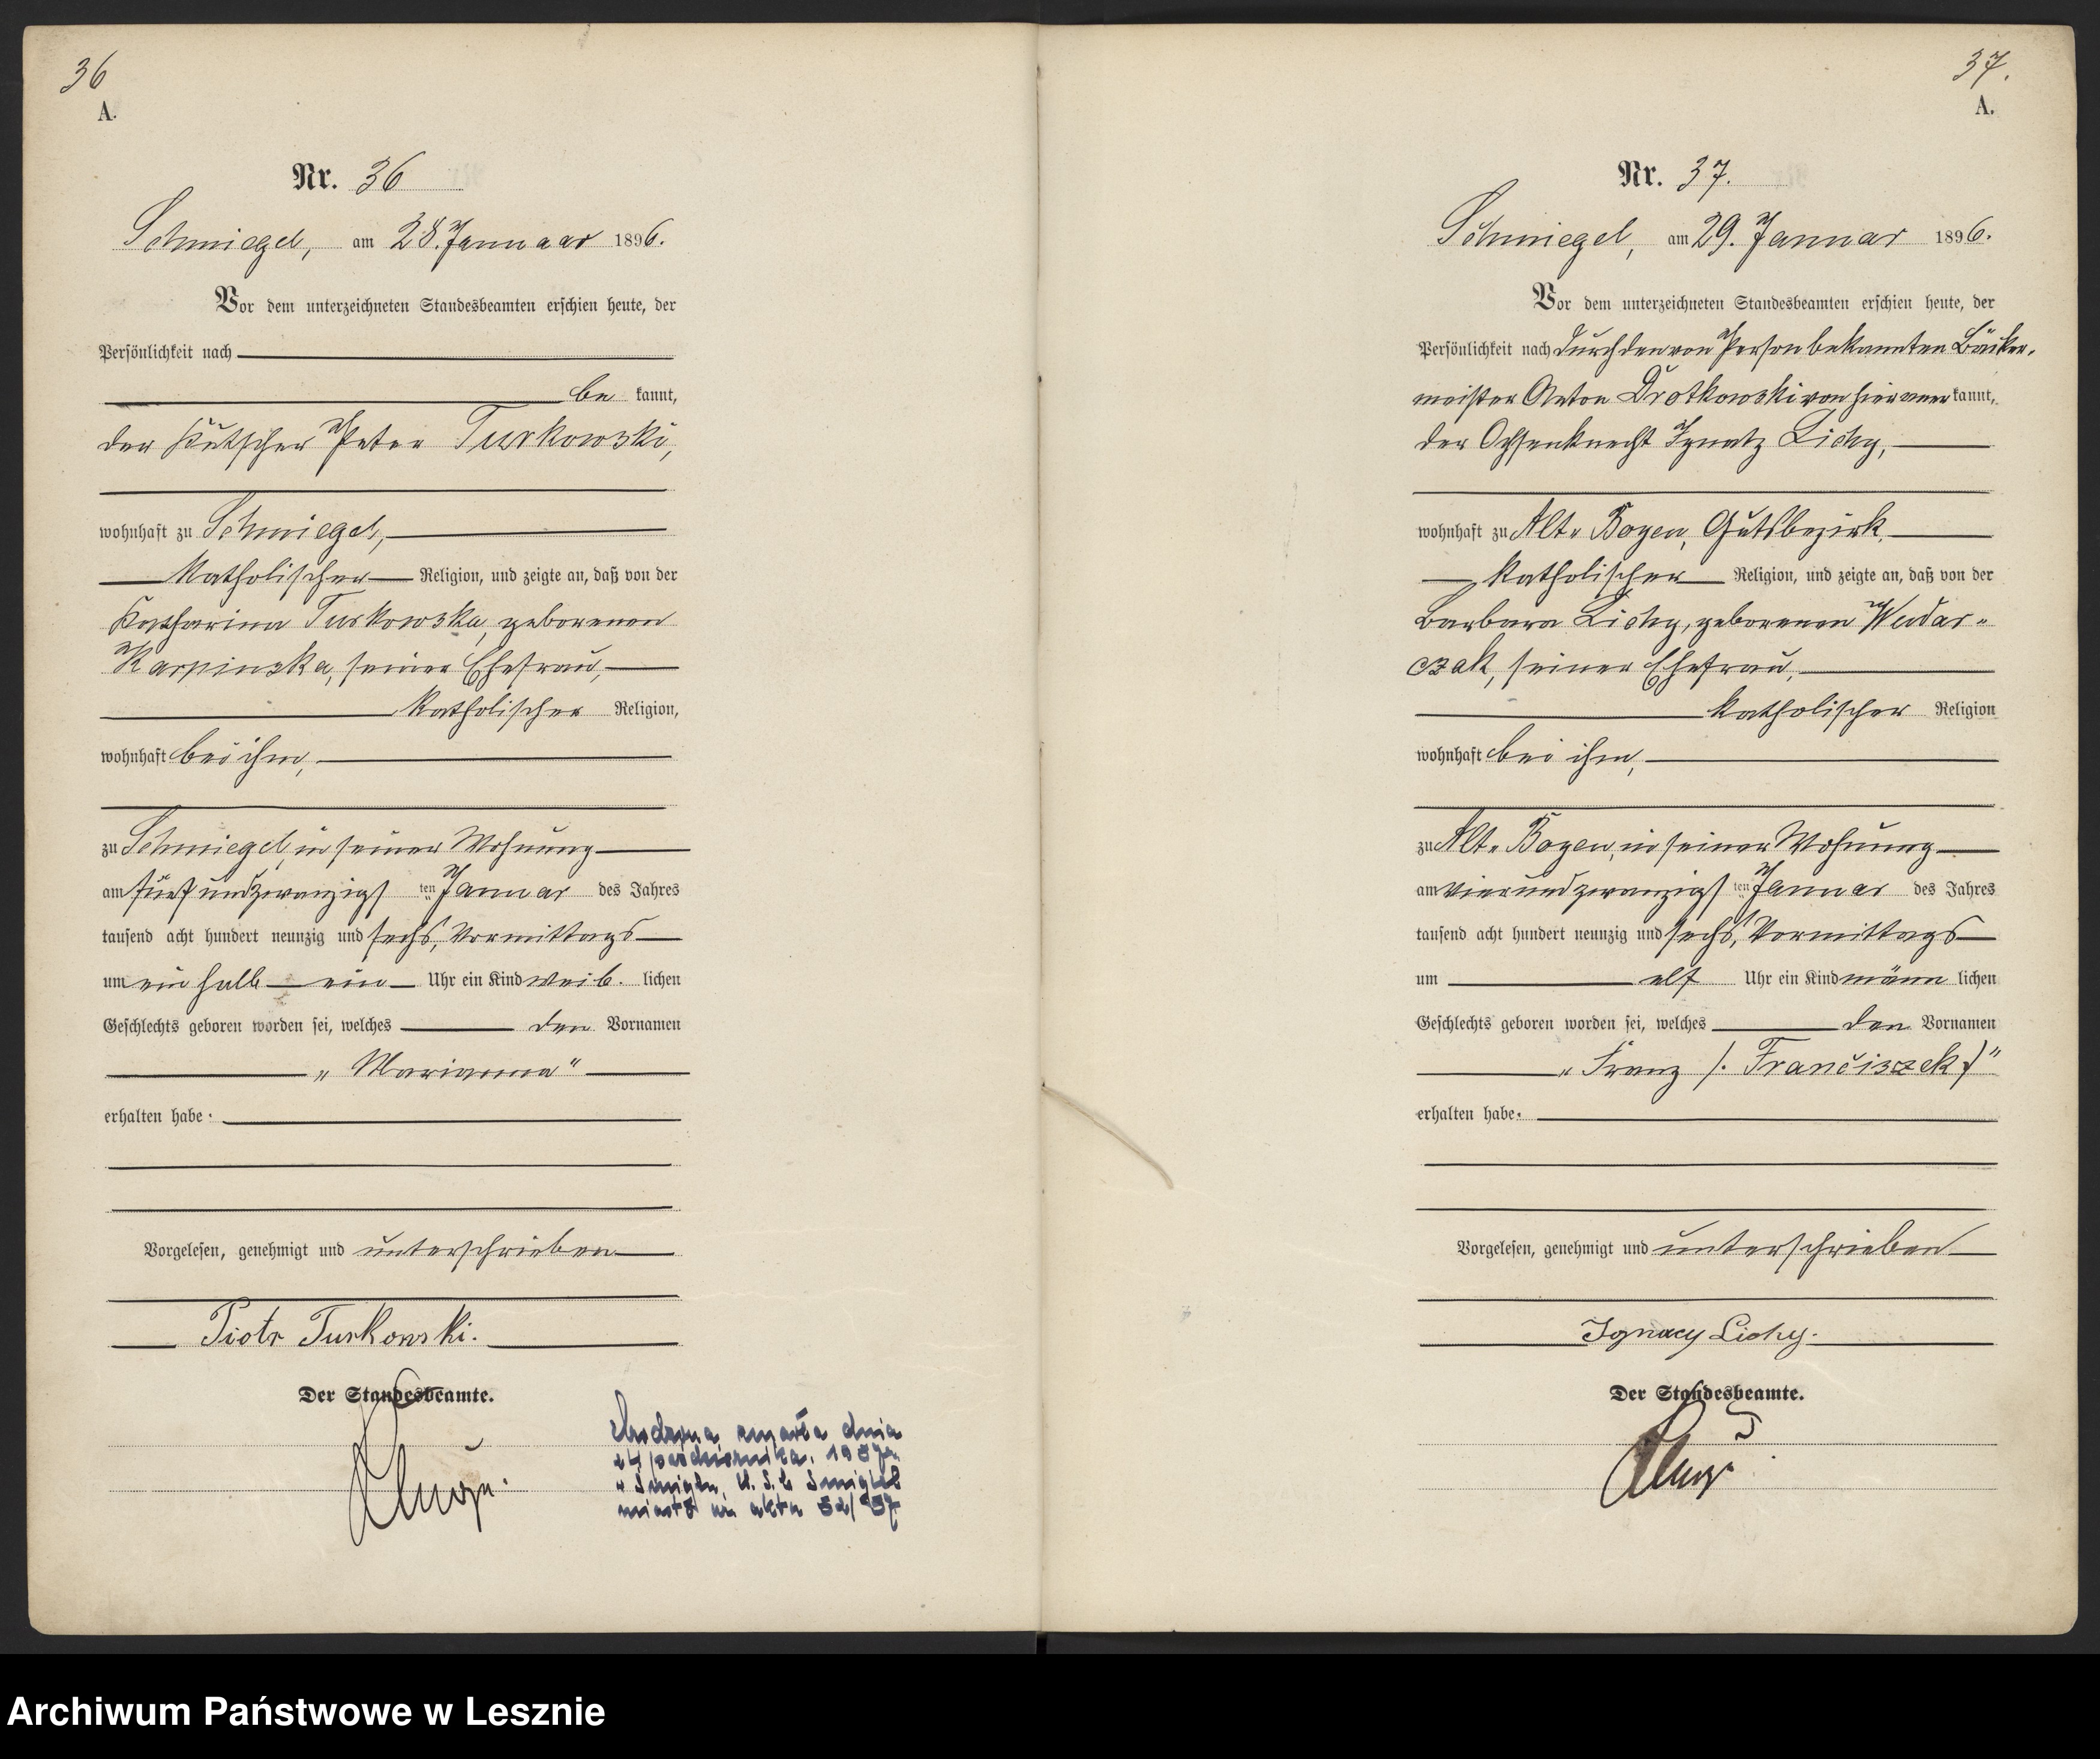 36
A.
Nr. 36
Schmiegel, am 28. Januar 1896.
Vor dem unterzeichneten Standesbeamten erschien heute, der
Persönlichkeit nach
be kannt,
der Kutscher Peter Turkowski,
wohnhaft zu Schmiegel,
katholischer Religion, und zeigte an, daß von der
Katharina Turkowska, geborenen
Karpinska, seiner Ehefrau,
katholischer Religion,
wohnhaft bei ihm,
zu Schmiegel, in seiner Wohnung
am fünf und zwanzigsten Januar des Jahres
tausend acht hundert neunzig und sechs, Vormittags
um ein halb ein Uhr ein Kind weib. lichen
Geschlechts geboren worden sei, welches den Vornamen
„Marianna"
erhalten habe.
Vorgelesen, genehmigt und unterschrieben
Piotr Turkowski.
Der Standesbeamte.
zmarła dnia
października 1957
w Śmiglu, U.S.C Śmigiel
miasto nr aktu 52/57
37.
A.
Nr. 37.
Schmiegel, am 29. Januar 1896.
Vor dem unterzeichneten Standesbeamten erschien heute, der
Persönlichkeit nach durch den von Person bekannten Bäcker-
meister Anton Drotkowski von hier anerkannt,
der Ochsenknecht Ignatz Lichy,
wohnhaft zu Alt-Boyen, Gutsbezirk,
katholischer Religion, und zeigte an, daß von der
Barbara Lichy, geborenen Wudar-
czak, seiner Ehefrau,
katholischer Religion
wohnhaft bei ihm,
zu Alt-Boyen, in seiner Wohnung
am vier und zwanzigsten Januar des Jahres
tausend acht hundert neunzig und sechs, Vormittags
um elf Uhr ein Kind männ lichen
Geschlechts geboren worden sei, welches den Vornamen
„Franz /. Franciszek ./"
erhalten habe.
Vorgelesen, genehmigt und unterschrieben
Ignacy Lichy.
Der Standesbeamte.
Archiwum Państwowe w Lesznie